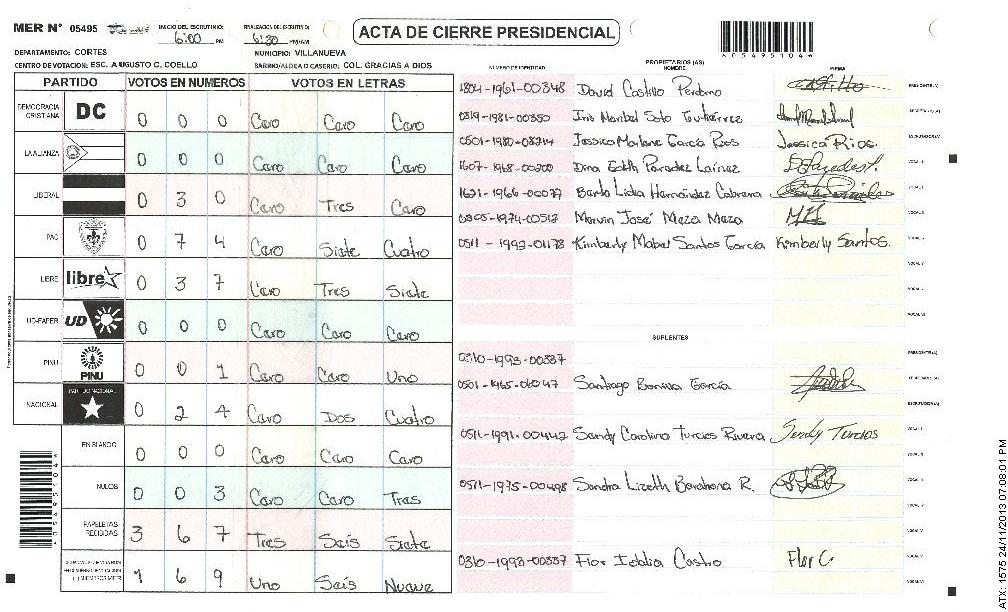 MER N° 05495 INICIO DEL ESCRUTINIO: 6:00 PM FINALIZACION DEL ESCRUTINIO: 6:30 PM/AM ACTA DE CIERRE PRESIDENCIAL
DEPARTAMENTO: CORTES MUNICIPIO: VILLANUEVA
CENTRO DE VOTACION: ESC. AUGUSTO C. COELLO BARRIO/ALDEA O CASERIO: COL. GRACIAS A DIOS
*05495104*
PARTIDO VOTOS EN NUMEROS VOTOS EN LETRAS
DEMOCRACIA CRISTIANA DC 0 0 0 Cero Cero Cero
LA ALIANZA 0 0 0 Cero Cero Cero
LIBERAL 0 3 0 Cero Tres Cero
PAC 0 7 4 Cero Siete Cuatro
LIBRE libre 0 3 7 Cero Tres Siete
UD-FAPER UD 0 0 0 Cero Cero Cero
PINU PINU 0 0 1 Cero Cero Uno
NACIONAL PARTIDO NACIONAL 0 2 4 Cero Dos Cuatro
EN BLANCO 0 0 0 Cero Cero Cero
NULOS 0 0 3 Cero Cero Tres
PAPELETAS RECIBIDAS 3 6 7 Tres Seis Siete
1 6 9 Uno Seis Nueve
PROPIETARIOS (AS)
NUMERO DE IDENTIDAD NOMBRE FIRMA
1804-1961-00348 David Castillo Perdomo PRESIDENTE (A)
0319-1981-00350 Iris Maribel Soto Gutierrez SECRETARIO (A)
0501-1980-08314 Jessica Marlene García Rios Jessica Rios. ESCRUTADOR (A)
1607-1968-00300 Dina Edith Paredez Laínez VOCAL I
1621-1966-00077 Berta Lidia Hernández Cabrera VOCAL II
0805-1974-00512 Marvin José Meza Meza VOCAL III
0511-1993-01178 Kimberly Mabel Santos García Kimberly Santos. VOCAL IV
VOCAL V
VOCAL VI
SUPLENTES
0310-1993-00337 PRESIDENTE (A)
0501-1965-06047 Santiago Bonilla García SECRETARIO (A)
ESCRUTADOR (A)
0511-1991-00442 Sandy Carolina Turcios Rivera Sendy Turcios VOCAL I
0511-1975-00498 Sandra Lizeth Barahona R.
0310-1993-00337 Flor Idalia Castro Flor C
*05495104*
ATX: 1575 24/11/2013 07:08:01 PM